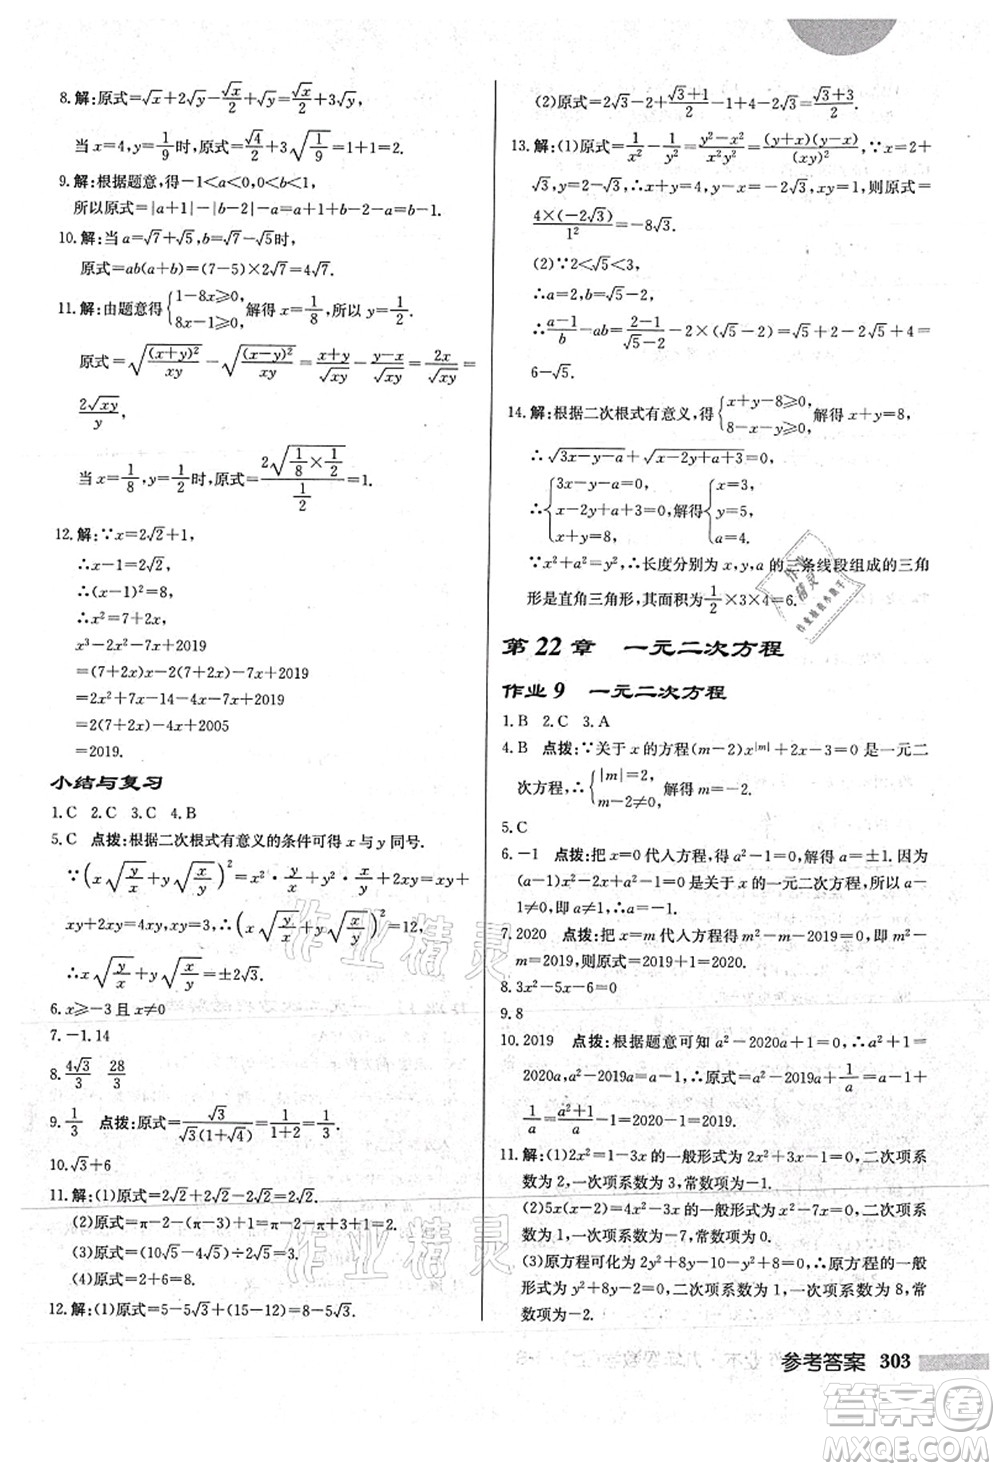 8.解:原式=√x+2√y-√x/2+√y=√x/2+3√y,
当 x=4,y=1/9时,原式=√4/2+3√(1/9)=1+1=2.
9.解:根据题意,得-1<a<0,0<b<1,
所以原式=|a+1|-|b-2|-|a-b|=a+b-2+2-b+a-b... 
10.解:当 a=√7+√5,b=√7-√5时,
原式=ab(a+b)=(7-5)×2√7=4√7.
11.解:由题意得{1-8x≥0, 8x-1≥0,解得 x=1/8,所以 y=1/2.
原式=√((x+y)²/xy)-√((x-y)²/xy)=(x+y)/√xy+(x-y)/√xy=2x/√xy=
2√xy/y,
当 x=1/8,y=1/2时,原式=2√(1/8×1/2)/(1/2)=1.
12.解:∵x=2√2+1,
∴x-1=2√2,
∴(x-1)²=8,
∴x²=7+2x,
x³-2x²-7x+2019
=(7+2x)x-2(7+2x)-7x+2019
=7x+2x²-14-4x-7x+2019
=2(7+2x)-4x+2005
=2019.
小结与复习
1.C 2.C 3.C 4.B
5.C 点拨:根据二次根式有意义的条件可得 x 与 y 同号.
∵(x√(y/x)+y√(x/y))²=x²·y/x+y²·x/y+2xy=xy+
xy+2xy=4xy,xy=3,∴(x√(y/x)+y√(x/y))²=12,
∴x√(y/x)+y√(x/y)=±2√3.
6.x≥-3 且 x≠0
7.-1.14
8.4√3/3 28/3
9.1/3 点拨:原式=√3/(√3(1+√4))=1/(1+2)=1/3.
10.√3+6
11.解:(1)原式=2√2+2√2-√2=3√2.
(2)原式=π-2-(π-3)=π-2-π+3=1.
(3)原式=(10√5-2√5)÷√5=8.
(4)原式=2+6=8.
12.解:(1)原式=5-5√3+(15-12)=8-5√3.
(2)原式=2√3-2+(√3+1)/2-1+4-2√3=(√3+3)/2.
13.解:(1)原式=1/x²-1/y²=(y²-x²)/x²y²=(y+x)(y-x)/(xy)²,∵x=2+
√3,y=2-√3,∴x+y=4,xy=1,y-x=-2√3,则原式=
4×(-2√3)/1²=-8√3.
(2)∵2<√5<3,
∴a=2,b=√5-2,
∴(a-1)/b-ab=(2-1)/(√5-2)-2×(√5-2)=√5+2-2√5+4=
6-√5.
14.解:根据二次根式有意义,得{x+y-8≥0, 8-x-y≥0,解得 x+y=8,
∴√(3x-y-a)+√(x-2y+a+3)=0,
∴{3x-y-a=0, x-2y+a+3=0, x+y=8, 解得{x=3, y=5, a=4.
∵x²+a²=y²,∴长度分别为 x,y,a 的三条线段组成的三角
形是直角三角形,其面积为1/2×3×4=6.
第 22 章 一元二次方程
作业 9 一元二次方程
1.B 2.C 3.A
4.B 点拨:∵关于 x 的方程(m-2)x^|m|+2x-3=0是一元二
次方程,∴{|m|=2, m-2≠0,解得 m=-2.
5.C
6.-1 点拨:把 x=0代入方程,得 a²-1=0,解得 a=±1.因为
(a-1)x²-x+a²-1=0 是关于 x 的一元二次方程,所以 a-
1≠0,即 a≠1,∴a 的值是-1.
7.2020 点拨:把 x=m 代入方程得 m²-m-2019=0,即 m²-
m=2019,则原式=2019+1=2020.
8.3x²-5x-6=0
9.8
10.2019 点拨:根据题意可知 a²-2020a+1=0,∴a²+1=
2020a,a²-2019a=a-1,∴原式=a²-2019a+1/a=a-1+
1/a=(a²+1)/a-1=2020-1=2019.
11.解:(1)2x²=1-3x的一般形式为 2x²+3x-1=0,二次项系
数为 2,一次项系数为 3,常数项为-1.
(2)5x(x-2)=4x²-3x 的一般形式为 x²-7x=0,二次项系
数为 1,一次项系数为-7,常数项为 0.
(3)原方程可化为 y²+8y-2=0,∴原方程的一般
形式为 y²+8y-2=0,二次项系数为 1,一次项系数为 8,常
数项为-2.
参考答案 303
作业精灵
作业精灵
作业精灵
答案圈
MXQE.COM